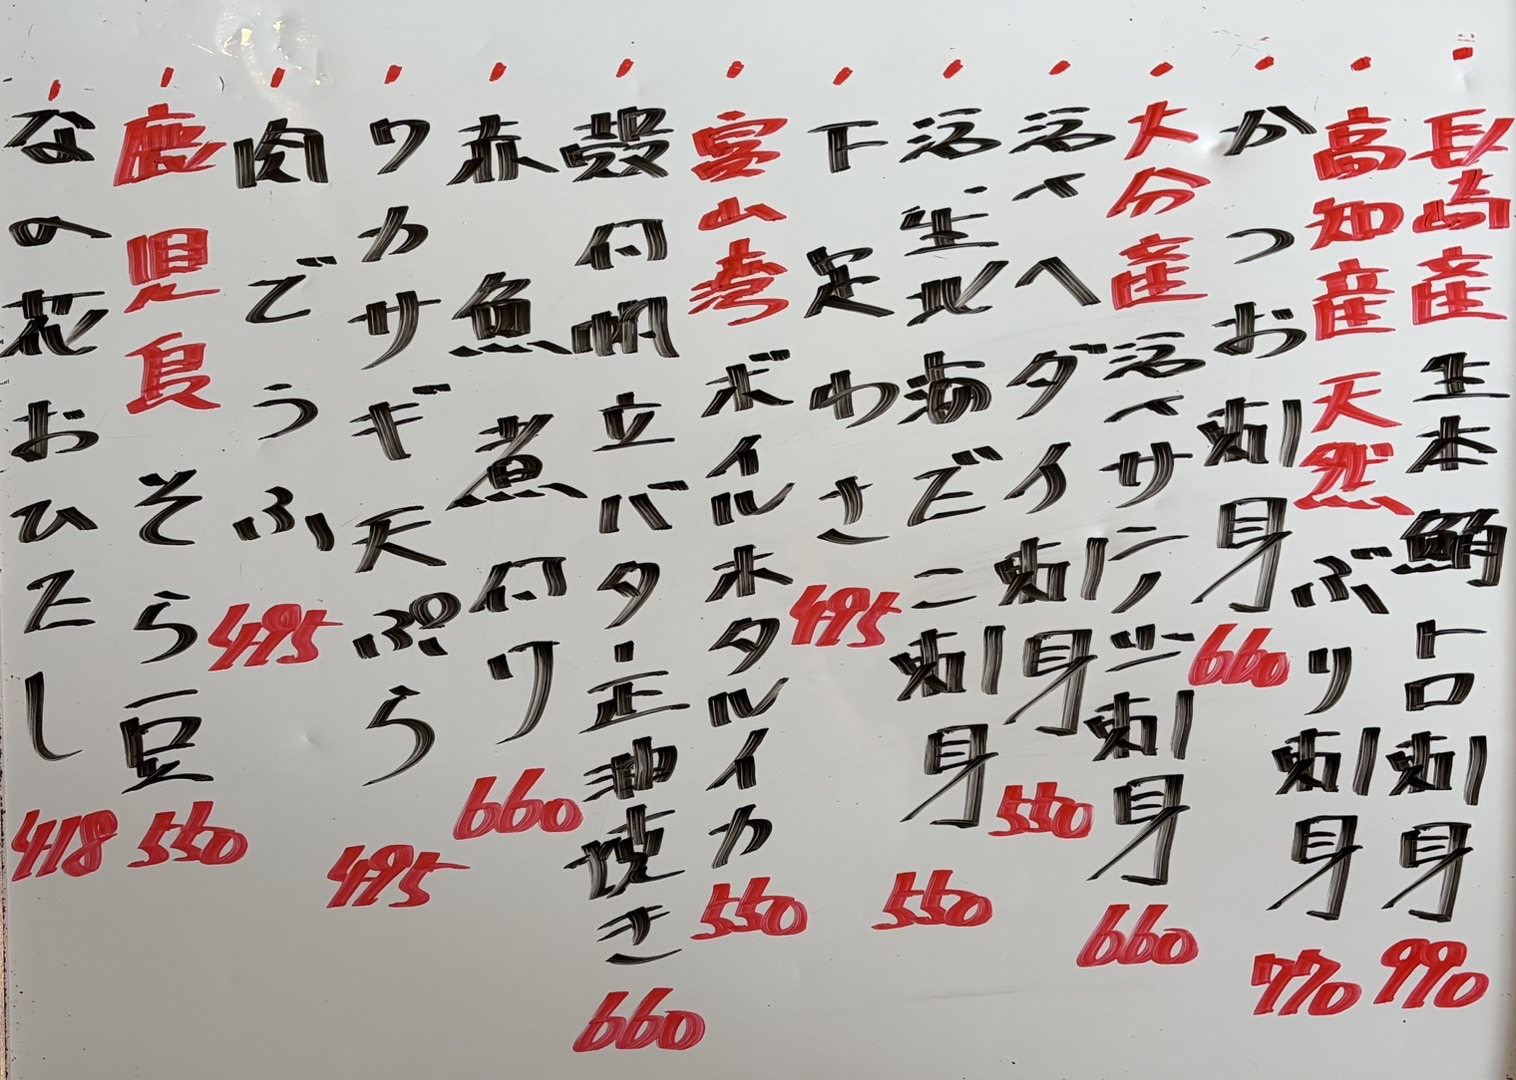 長崎産生本鮪トロ刺身990
高知産天然ぶり刺身770
かつお刺身660
大分産活〆サンノジ刺身660
活〆へダイ刺身550
活生地海だこ刺身550
下足わさ495
富山湾ボイルホタルイカ550
殻付帆立バター正油焼き660
赤魚煮付け660
ワカサギ天ぷら495
肉どうふ495
鹿児島そら豆550
なの花おひたし418